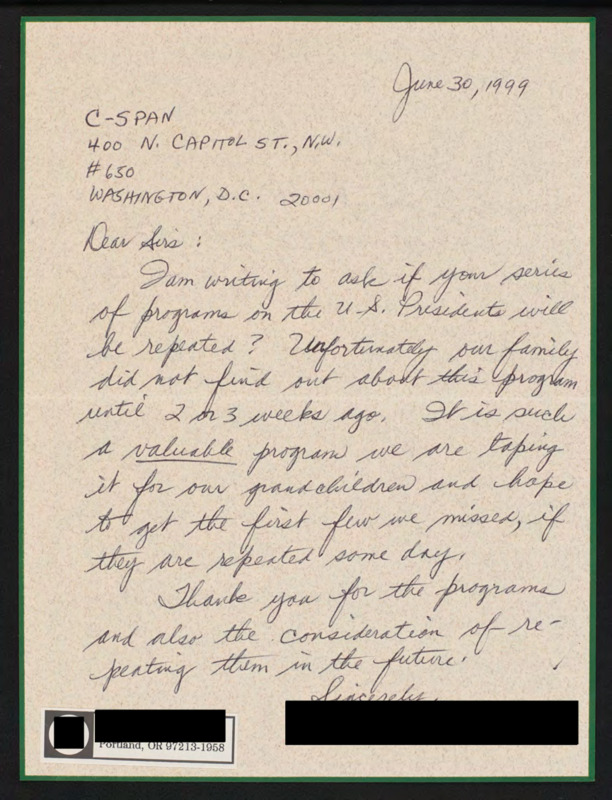 June 30, 1999
C-SPAN
400 N. CAPITOL ST., N.W.
#650
WASHINGTON, D.C. 20001
Dear Sirs:
I am writing to ask if your series
of programs on the U.S. Presidents will
be repeated? Unfortunately our family
did not find out about this program
until 2 or 3 weeks ago. It is such
a valuable program we are taping
it for our grandchildren and hope
to get the first few we missed, if
they are repeated some day.
Thank you for the programs
and also the consideration of re-
peating them in the future.
Sincerely,
Portland, OR 97213-1958